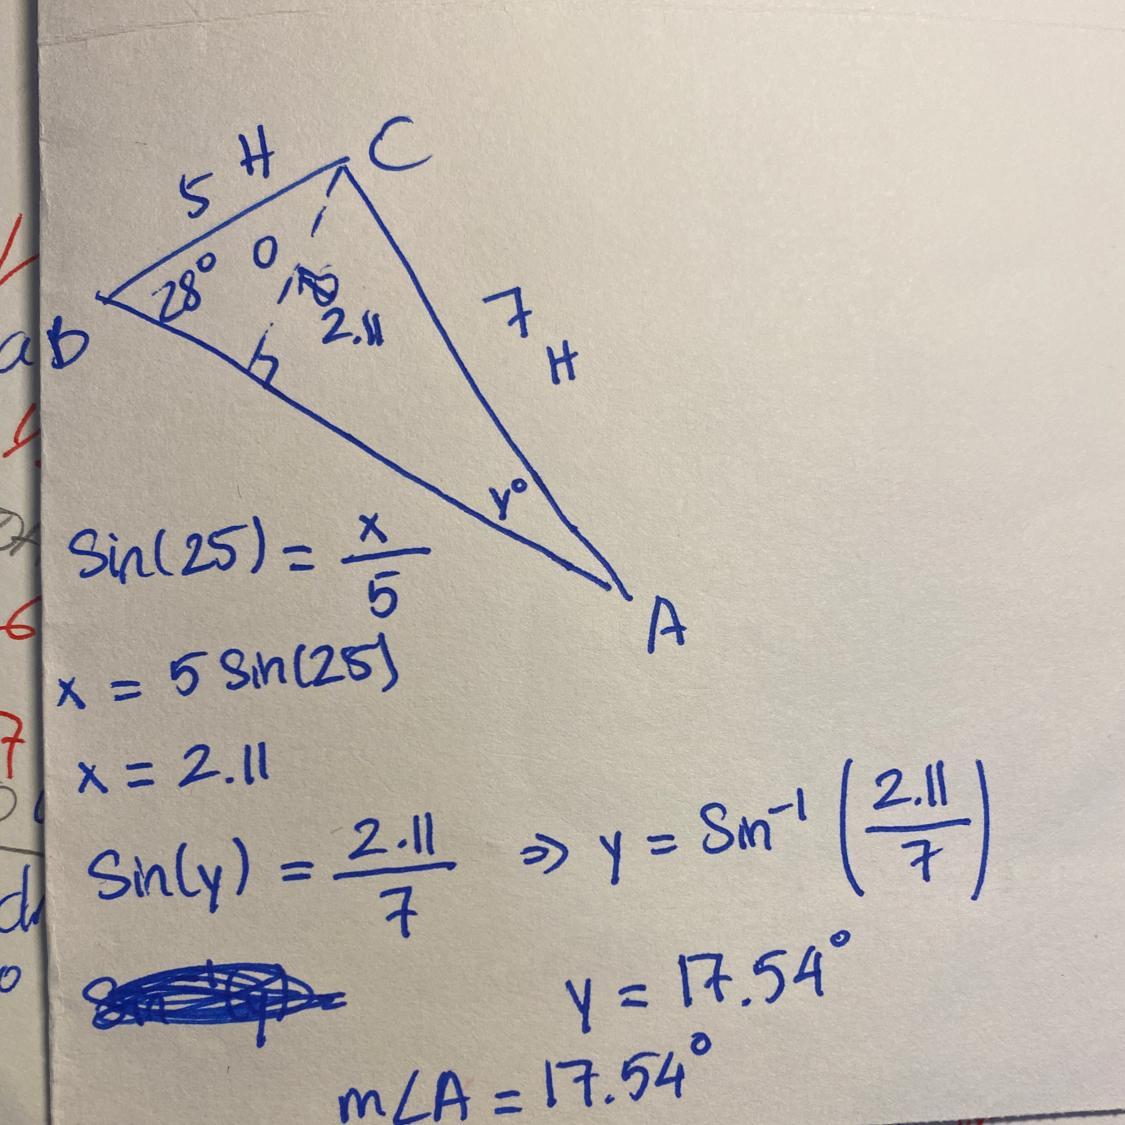 5 H C
28° O
B
2.11
7
H
y°
A
Sin(25) = x/5
x = 5 Sin(25)
x = 2.11
Sin(y) = 2.11/7 ⇒ y = Sin⁻¹(2.11/7)
y = 17.54°
m∠A = 17.54°